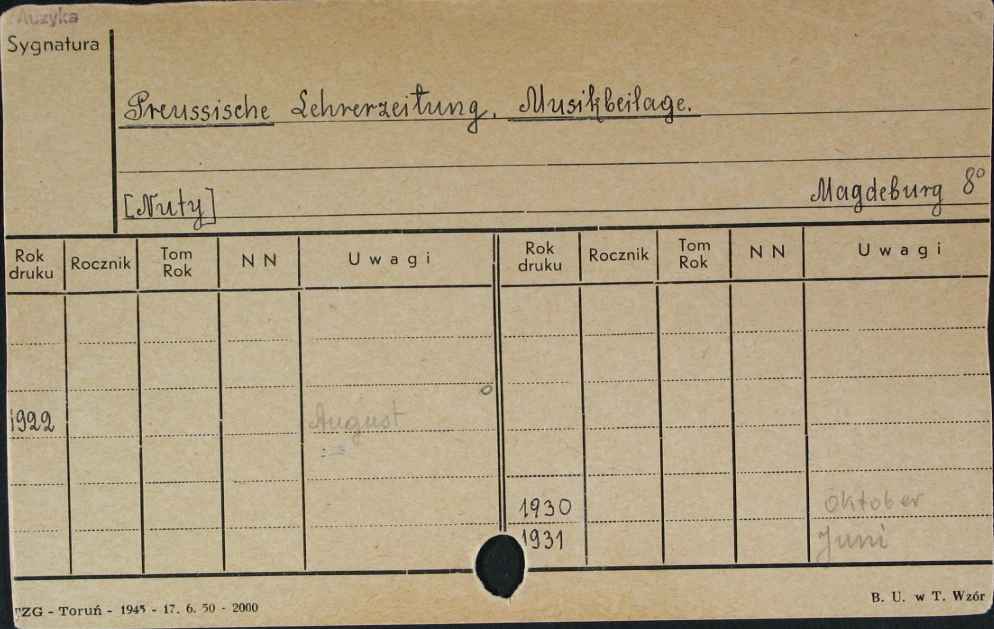 Muzyka
Sygnatura
Preussische Lehrerzeitung. Musikbeilage.
[Nuty] Magdeburg 8°
Rok druku Rocznik Tom Rok N N Uwagi Rok druku Rocznik Tom Rok N N Uwagi
1922 August
1930 Oktober
1931 Juni
TZG - Toruń - 1945 - 17. 6. 50 - 2000 B. U. w T. Wzór